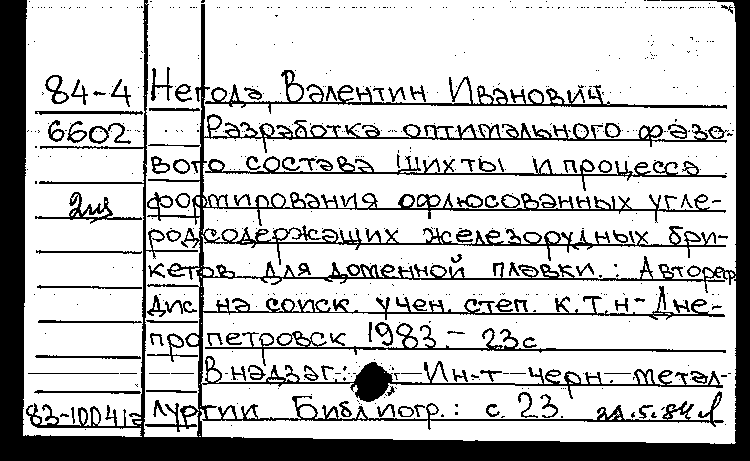 84-4 Негода, Валентин Иванович.
6602 Разработка оптимального фазо-
вого состава шихты и процесса
2ш формирования офлюсованных угле-
родсодержащих железорудных бри-
кетов для доменной плавки.: Автореф
дис на соиск. учен. степ. к.т.н- Дне-
пропетровск, 1983.- 23с.
В надзаг.: Ин-т черн. метал-
83-10041а лургии Библиогр.: с. 23.